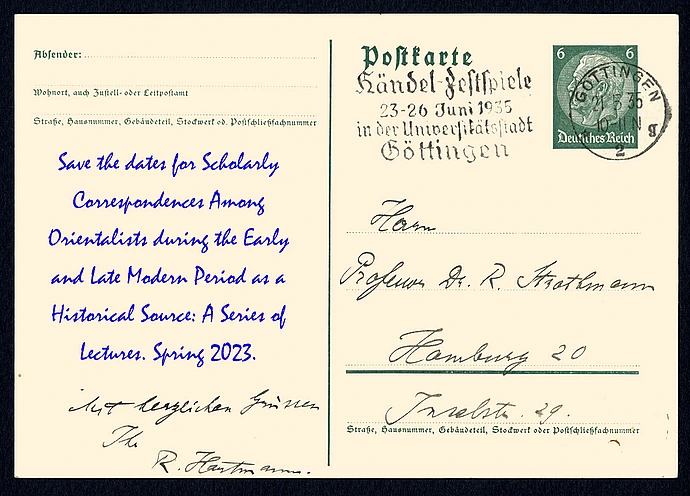 Absender:
Wohnort, auch Zustell- oder Leitpostamt
Straße, Hausnummer, Gebäudeteil, Stockwerk od. Postschließfachnummer
Save the dates for Scholarly
Correspondences Among
Orientalists during the Early
and Late Modern Period as a
Historical Source: A Series of
Lectures. Spring 2023.
Mit herzlichen Grüssen
Ihr
R. Hartmann.
Postkarte
Händel-Festspiele
23-26 Juni 1935
in der Universitätsstadt
Göttingen
6 6
Deutsches Reich
GÖTTINGEN
21.6.35
10-11 N
2 g
Herrn
Professor Dr. R. Strothmann
Hamburg 20
Inselstr. 29.
Straße, Hausnummer, Gebäudeteil, Stockwerk oder Postschließfachnummer